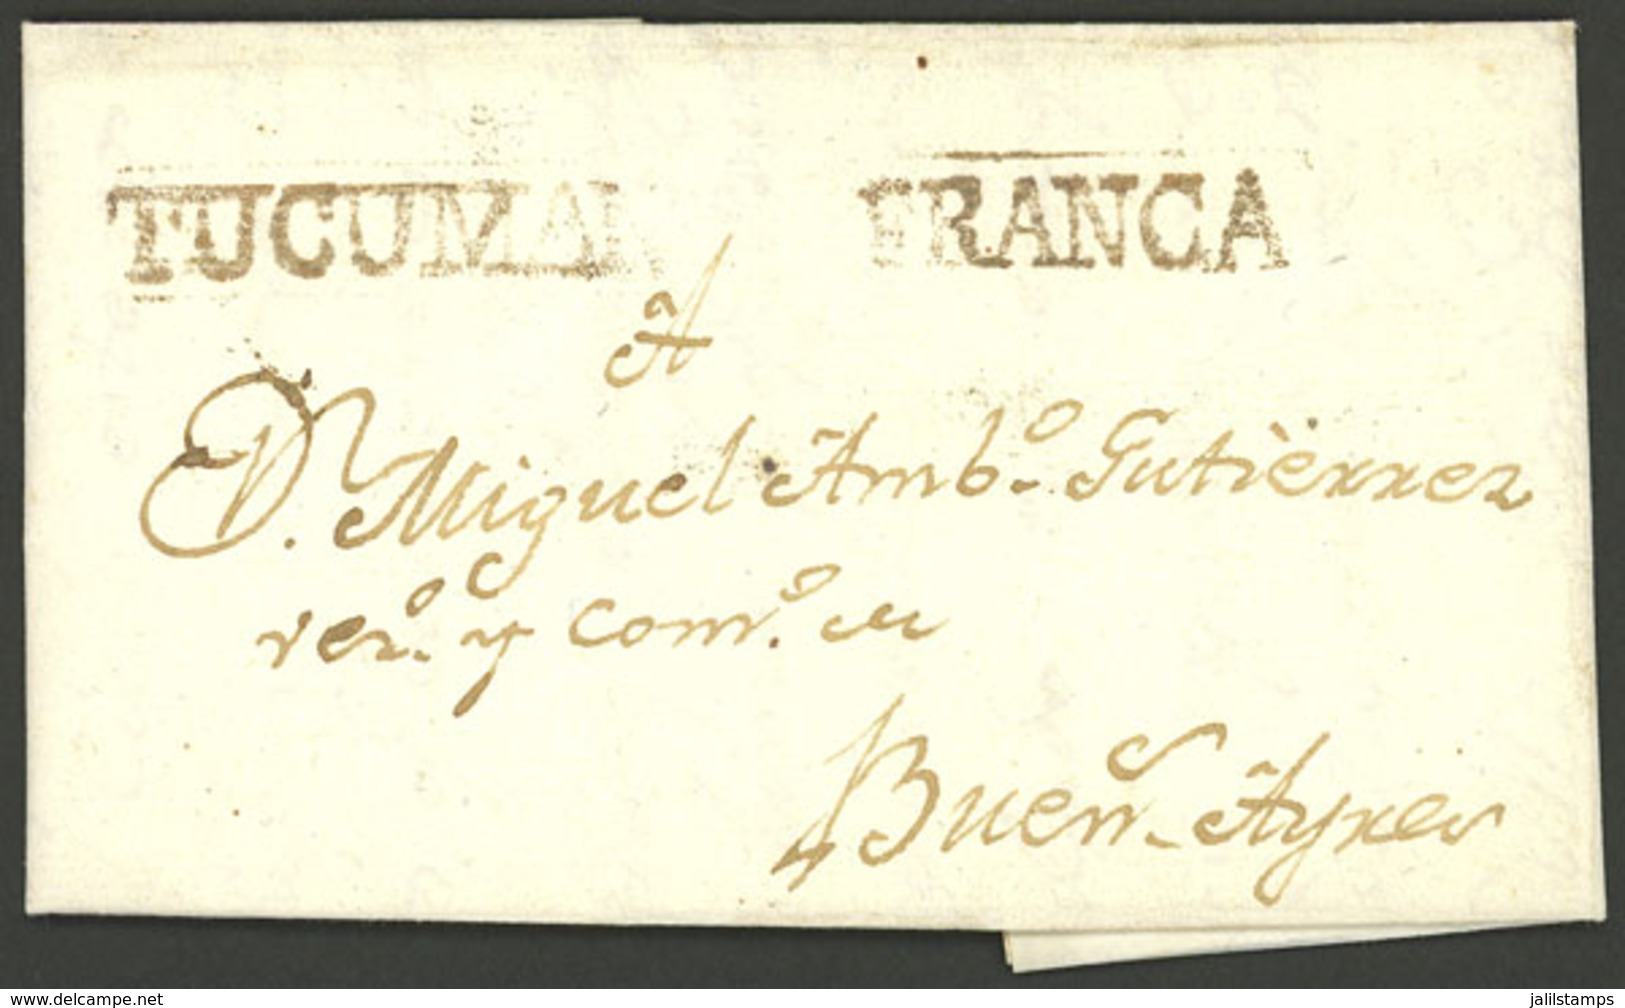 TUCUMAN FRANCA
A
Dn. Miguel Ambo. Gutièrrez
vezo. y como. de
Buens. Ayres
www.delcampe.net jalilstamps